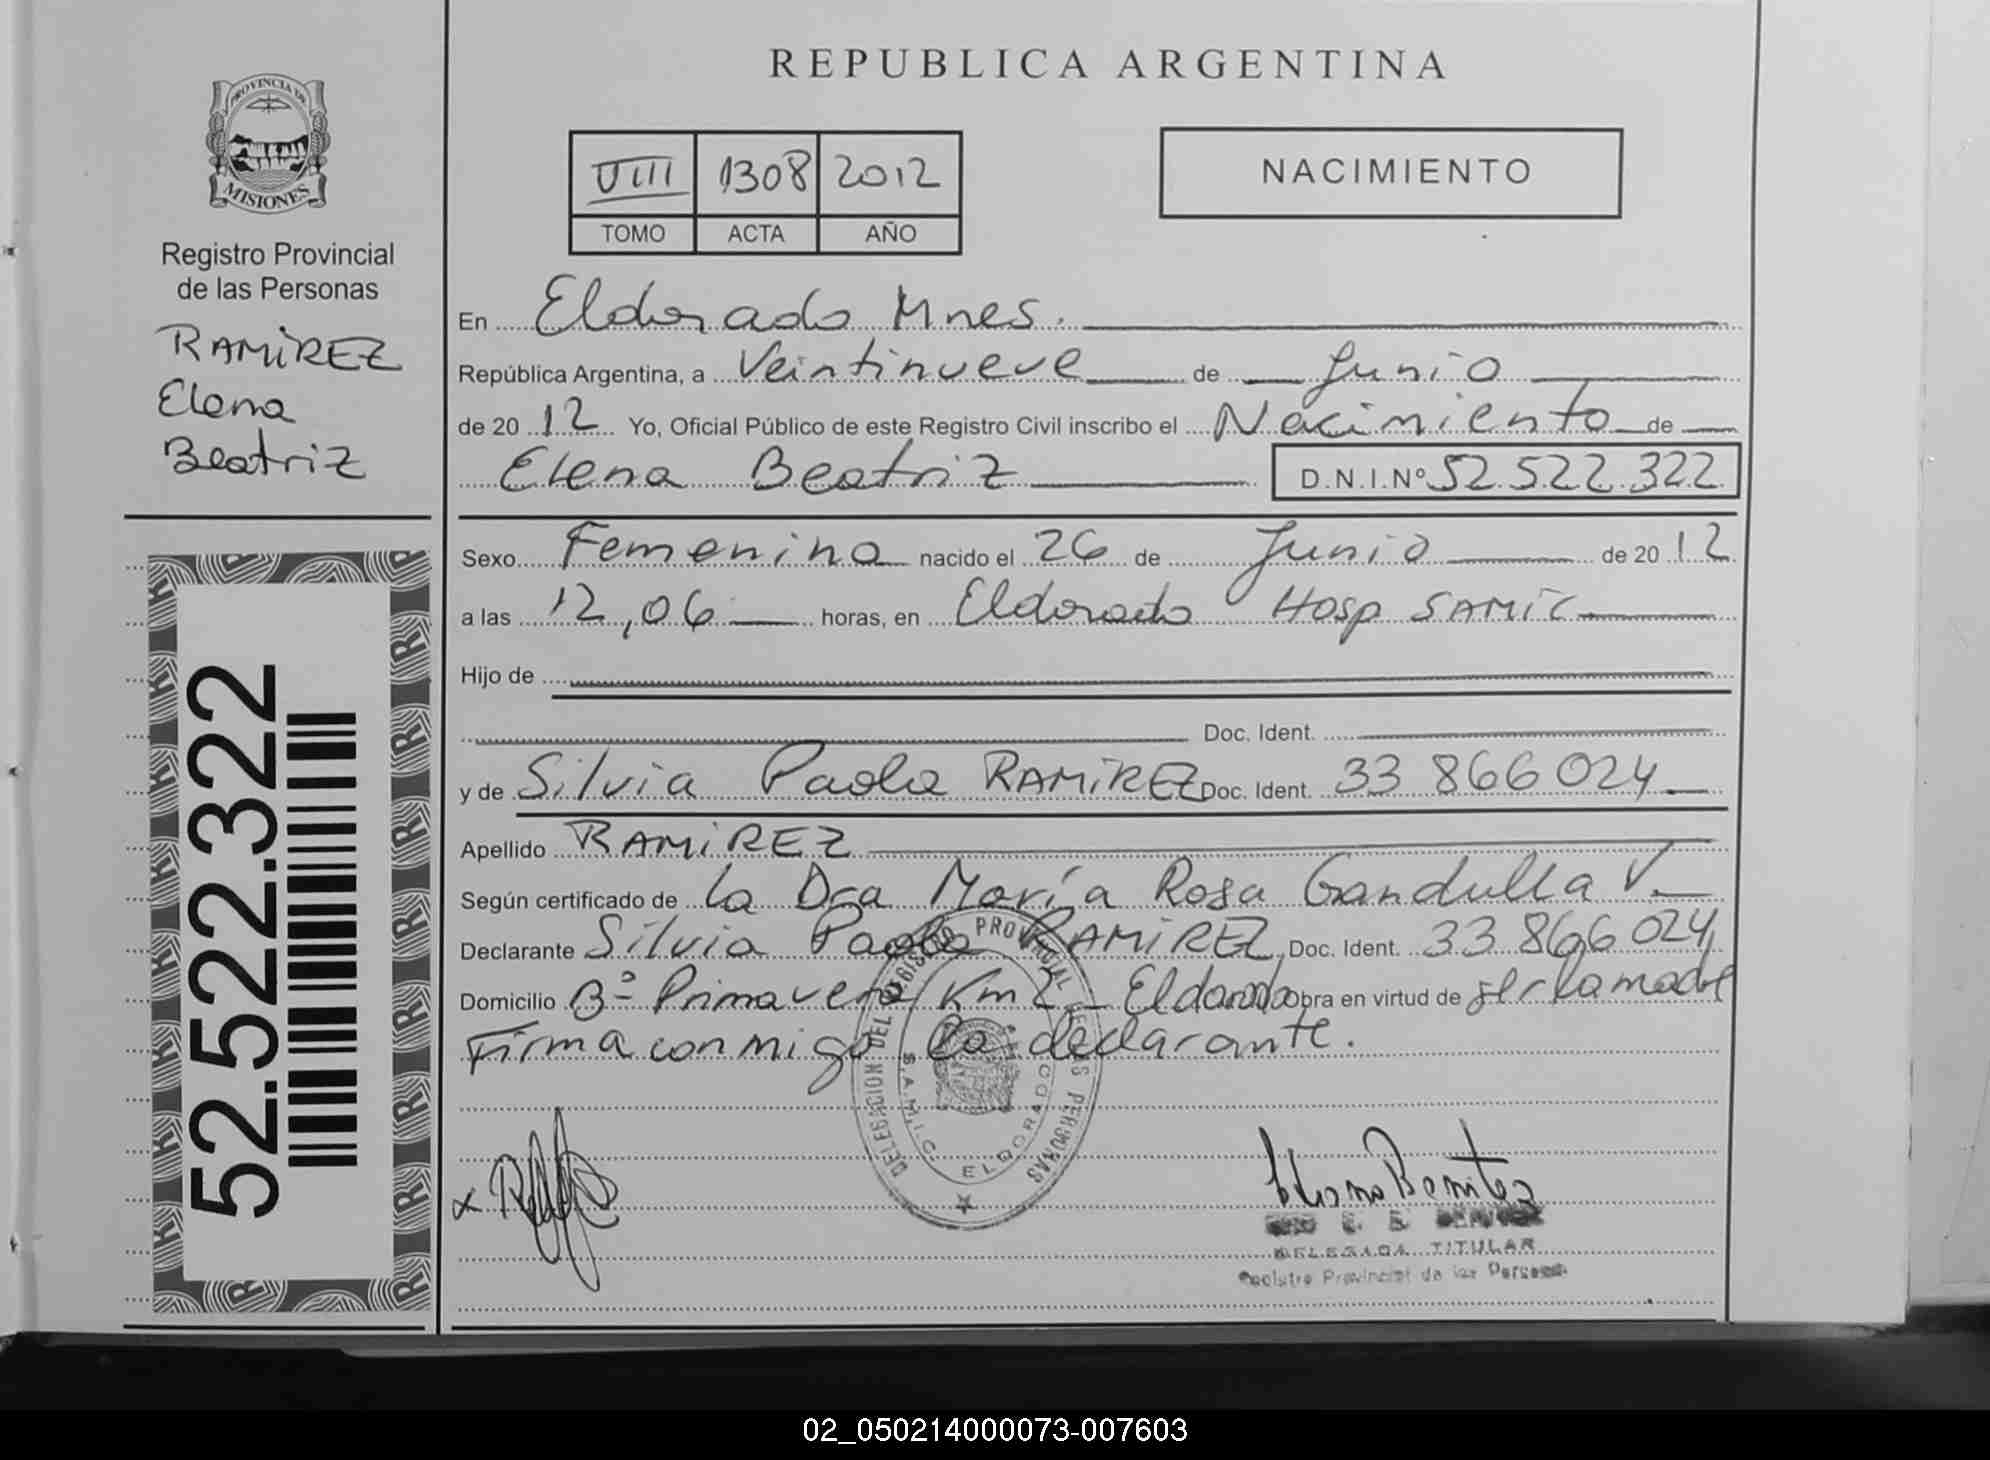 REPUBLICA ARGENTINA
PROVINCIA DE
MISIONES
Registro Provincial
de las Personas
RAMIREZ
Elena
Beatriz
52.522.322
VIII 1308 2012
TOMO ACTA AÑO
NACIMIENTO
En Eldorado Mnes.
República Argentina, a Veintinueve de Junio
de 2012 Yo, Oficial Público de este Registro Civil inscribo el Nacimiento de
Elena Beatriz D.N.I.Nº 52.522.322
Sexo Femenina nacido el 26 de Junio de 2012
a las 12,06 horas, en Eldorado Hosp SAMIC
Hijo de
Doc. Ident.
y de Silvia Paola RAMIREZ Doc. Ident. 33 866 024
Apellido RAMIREZ
Según certificado de la Dra María Rosa Gandulla V
Declarante Silvia Paola RAMIREZ Doc. Ident. 33 866 024
Domicilio Bº Primavera Km 2 - Eldorado Obra en virtud de ser la madre
Firma conmigo la declarante.
DELEGACION DEL REGISTRO PROVINCIAL DE LAS PERSONAS
S.A.M.I.C. ELDORADO
x
Benitez
DELEGADA TITULAR
Registro Provincial de las Personas
02_050214000073-007603